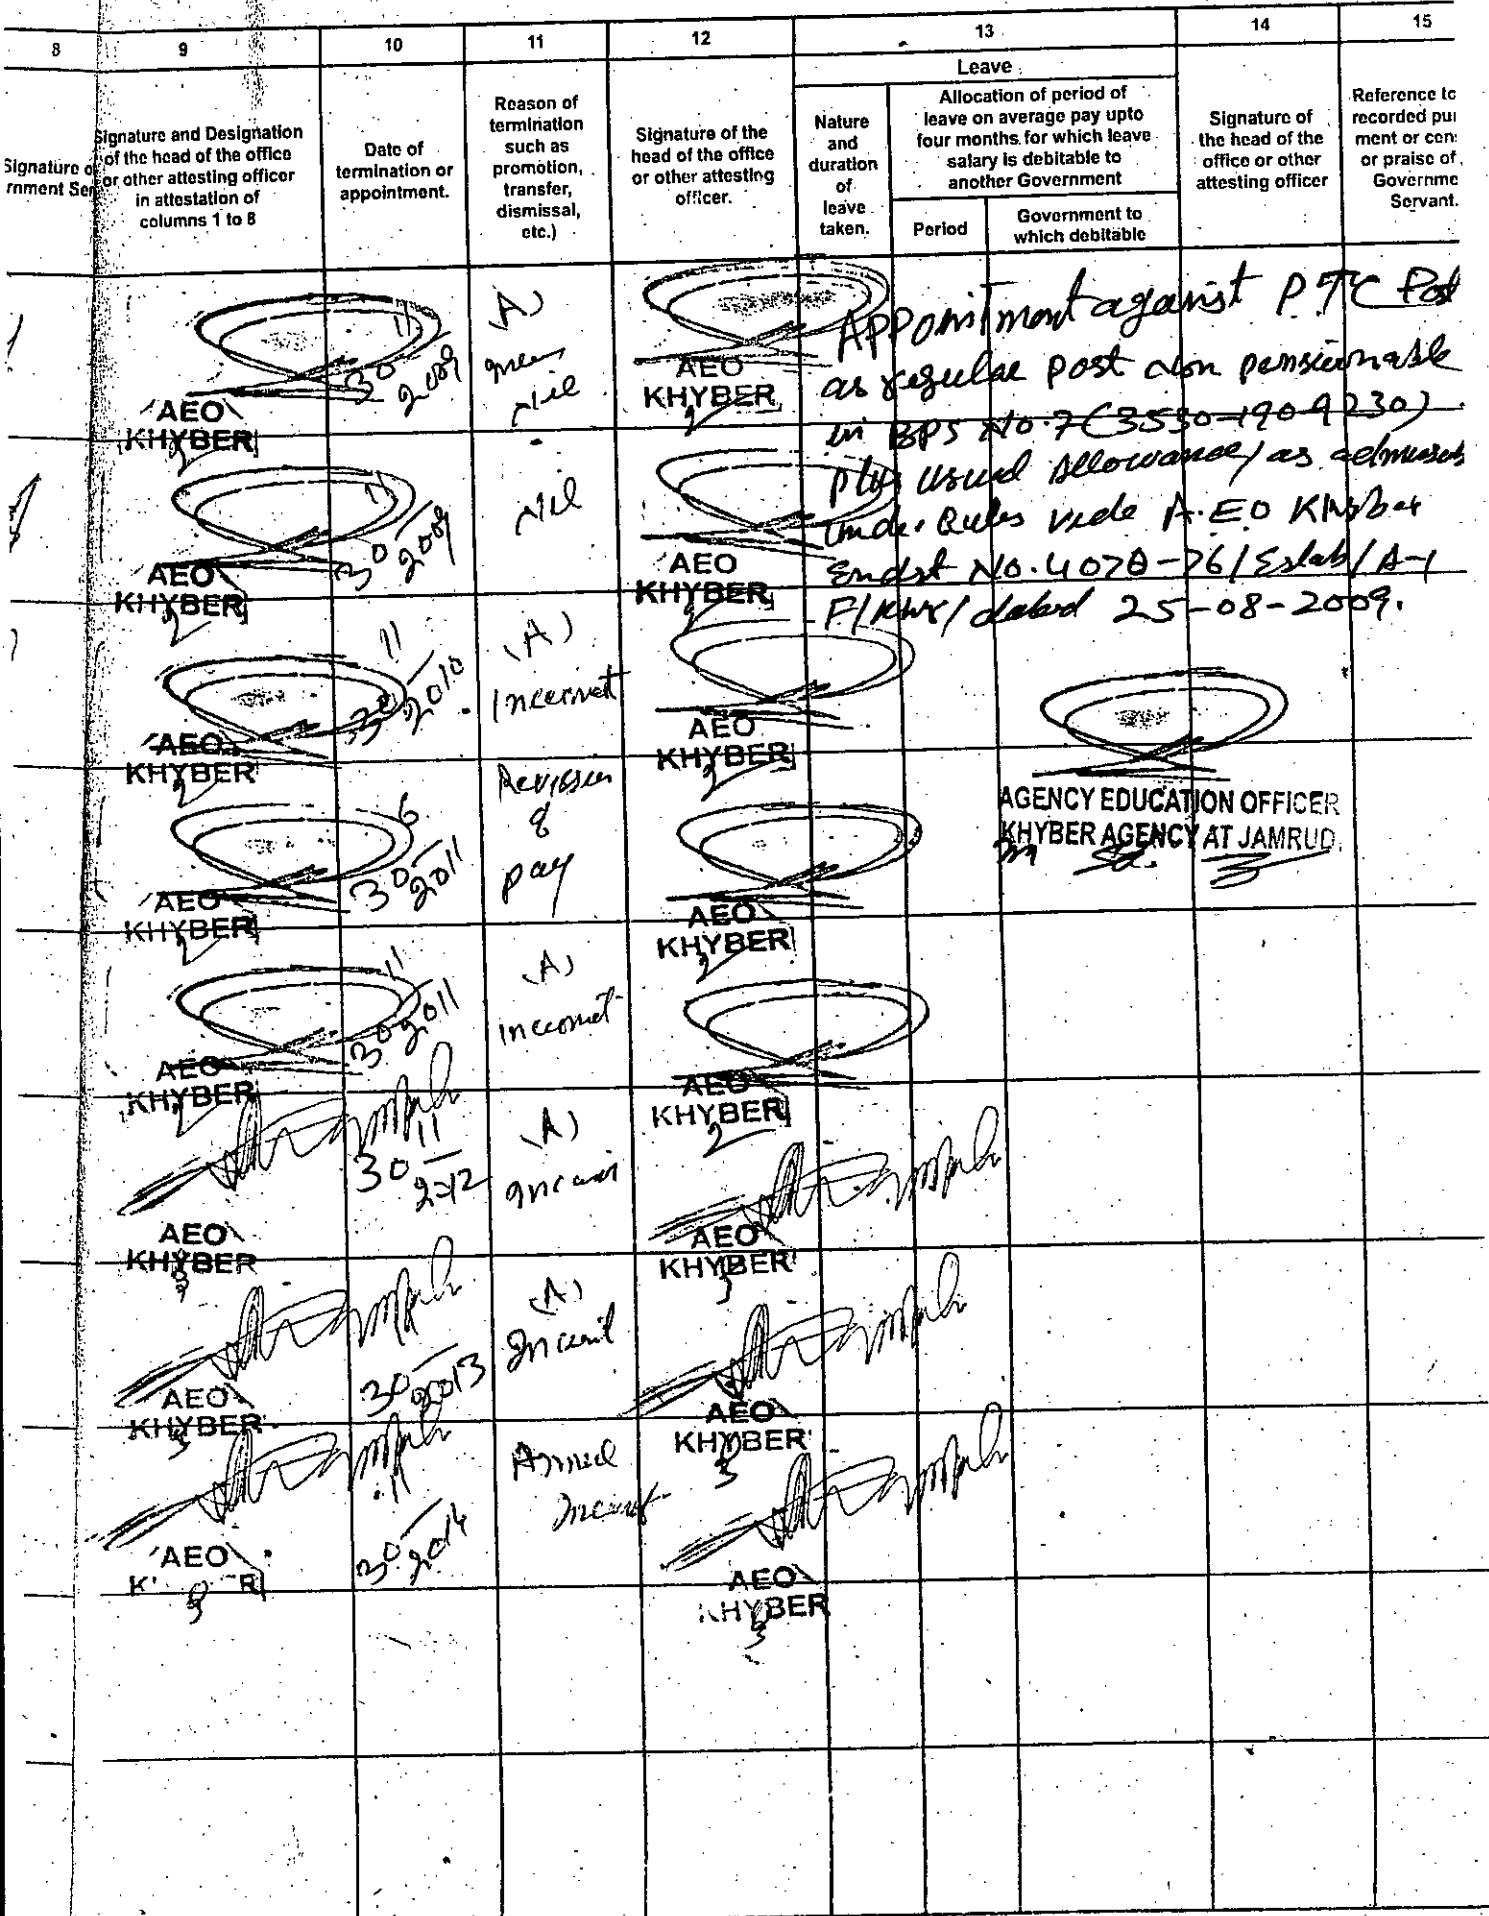 8 9 10 11 12 13 14 15
Signature o
rnment Ser
Signature and Designation
of the head of the office
or other attesting officer
in attestation of
columns 1 to 8
Date of
termination or
appointment.
Reason of
termination
such as
promotion,
transfer,
dismissal,
etc.)
Signature of the
head of the office
or other attesting
officer.
Leave
Nature
and
duration
of
leave
taken.
Allocation of period of
leave on average pay upto
four months for which leave
salary is debitable to
another Government
Period
Government to
which debitable
Signature of
the head of the
office or other
attesting officer
Reference to
recorded pu
ment or cen
or praise of
Governme
Servant.
AEO
KHYBER
30 11
2009
(A)
Nil
AEO
KHYBER
Appointment against P.T.C Post
as regular post non pensionable
in BPS No.7 (3530-190-9230)
plus usual Allowance/ as admissib
under Rules vide A.EO Khyber
Endst No. 4070-76/Estab/A-1
F/KHY/ dated 25-08-2009.
AEO
KHYBER
30 11
2009
Nil
AEO
KHYBER
AEO
KHYBER
30 11
2010
(A)
Increment
AEO
KHYBER
AGENCY EDUCATION OFFICER
KHYBER AGENCY AT JAMRUD.
AEO
KHYBER
30 6
2011
Revision
of
pay
AEO
KHYBER
AEO
KHYBER
30 11
2011
(A)
increment
AEO
KHYBER
AEO
KHYBER
30 11
2012
(A)
AEO
KHYBER
AEO
KHYBER
30
2013
(A)
AEO
KHYBER
AEO
K R
30 11
2014
Annual
AEO
KHYBER